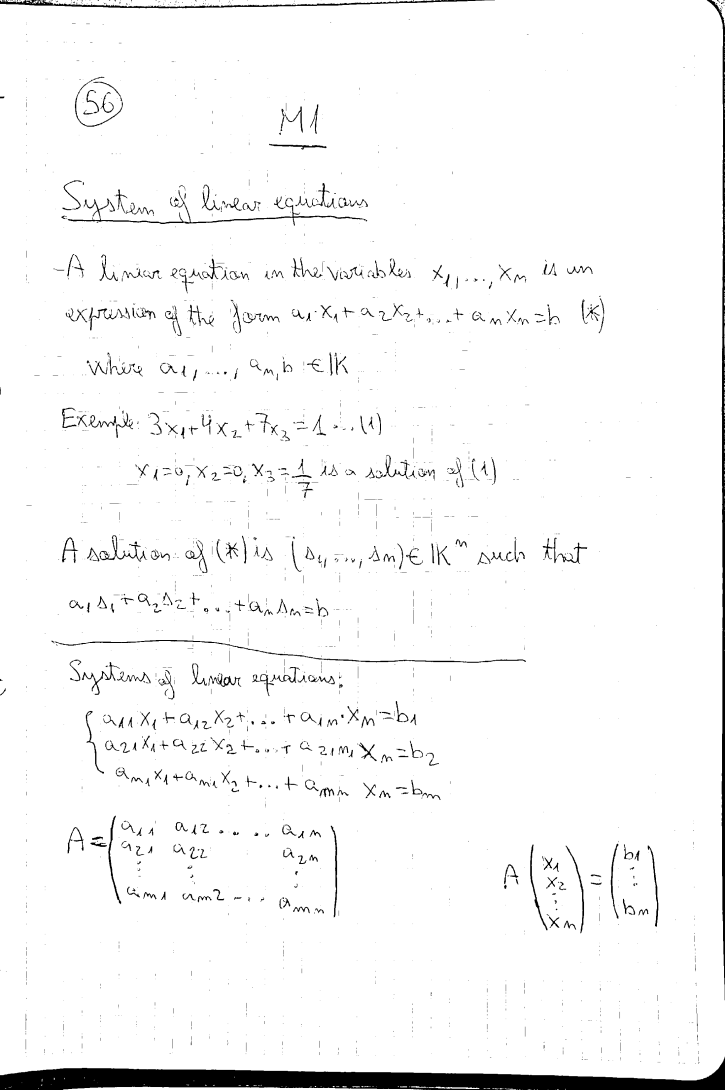 56
M1
System of linear equations
- A linear equation in the variables x₁, ..., xₙ is un
expression of the form a₁·x₁ + a₂x₂ + ... + aₙxₙ = b (*)
where a₁, ..., aₙ, b ∈ 𝕂
Exemple: 3x₁ + 4x₂ + 7x₃ = 1 ... (1)
x₁=0, x₂=0, x₃ = 1/7 is a solution of (1)
A solution of (*) is (s₁, ..., sₙ) ∈ 𝕂ⁿ such that
a₁s₁ + a₂s₂ + ... + aₙsₙ = b
Systems of linear equations:
{ a₁₁x₁ + a₁₂x₂ + ... + a₁ₙ·xₙ = b₁
a₂₁x₁ + a₂₂x₂ + ... + a₂,ₙ, xₙ = b₂
aₘ₁x₁ + aₘ₁x₂ + ... + aₘₙ xₙ = bₘ
A = (a₁₁ a₁₂ .. .. a₁ₙ
a₂₁ a₂₂ a₂ₙ
⋮ ⋮ ⋮
aₘ₁ aₘ₂ ... aₘₙ)
A (x₁ x₂ ⋮ xₙ) = (b₁ ⋮ bₘ)